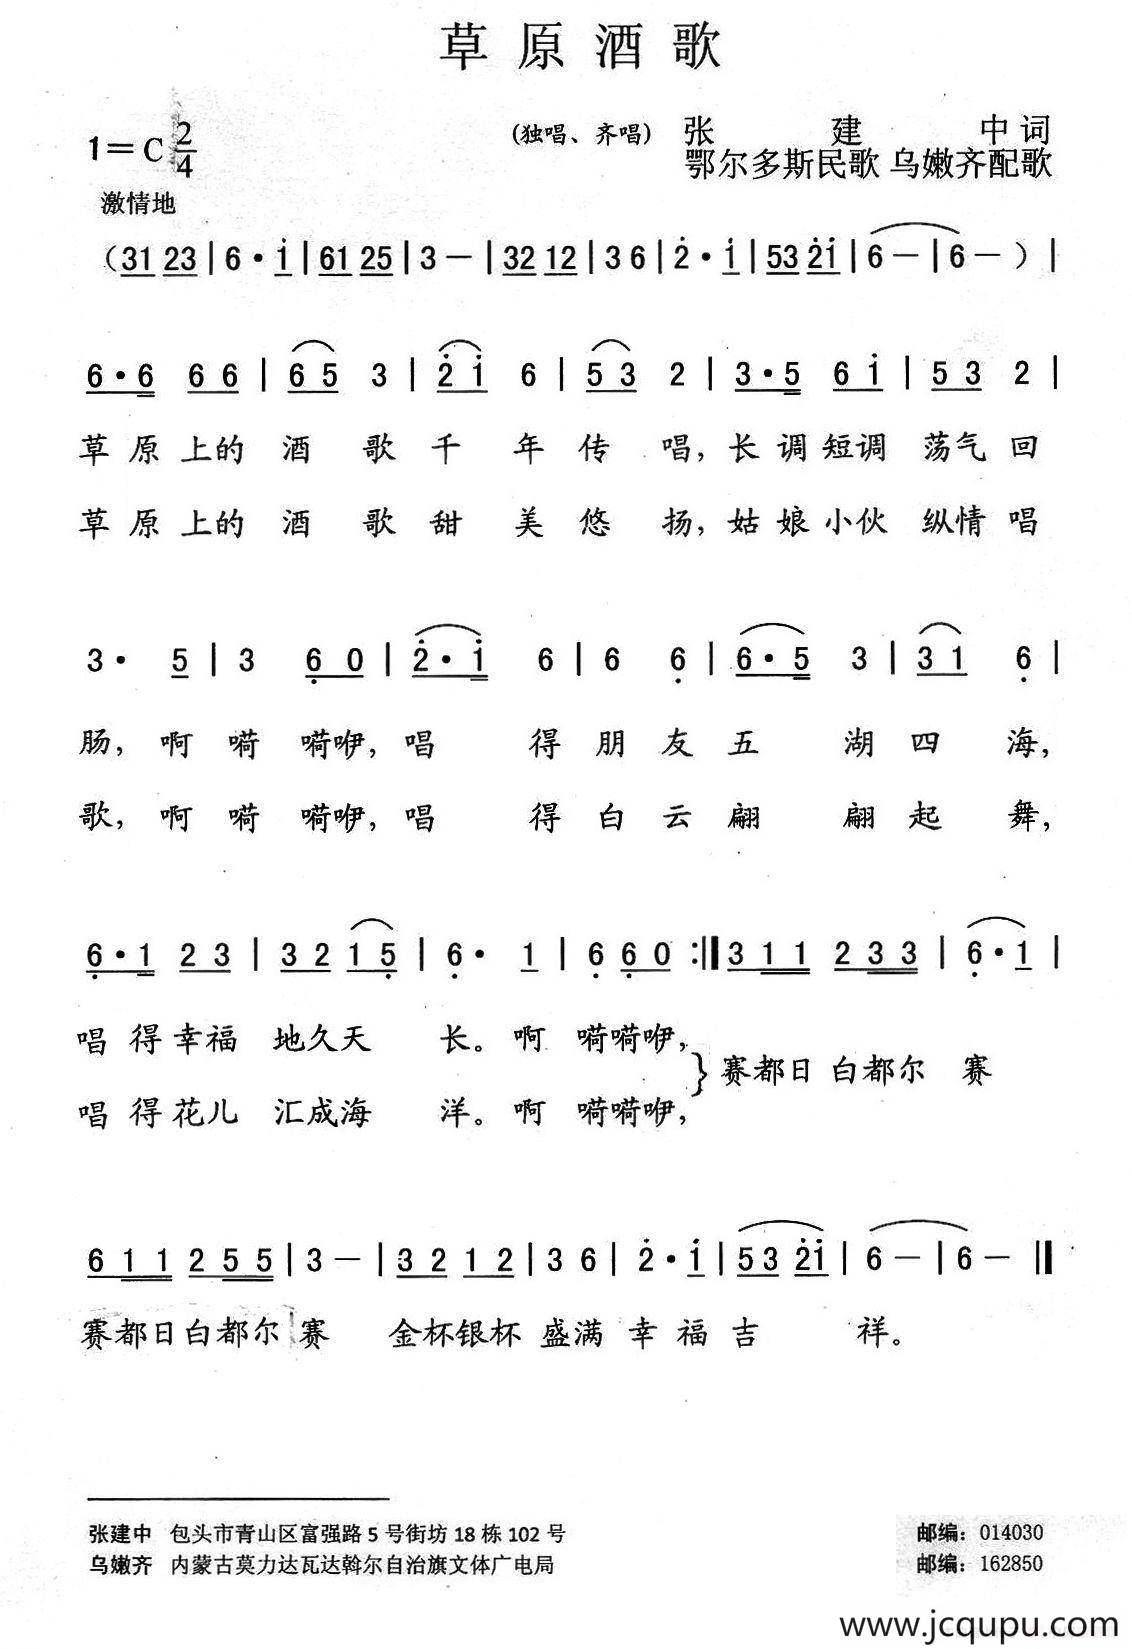 草原酒歌
(独唱、齐唱) 张建中词
1=C 2/4 鄂尔多斯民歌 乌嫩齐配歌
激情地
(31 23 | 6 · i | 61 25 | 3 — | 32 12 | 3 6 | 2 · i | 53 2i | 6 — | 6 — ) |
6 · 6 6 6 | 6 5 3 | 2 i 6 | 5 3 2 | 3 · 5 6 i | 5 3 2 |
草原上的酒歌千年传唱,长调短调荡气回
草原上的酒歌甜美悠扬,姑娘小伙纵情唱
3 · 5 | 3 6 0 | 2 · i 6 | 6 6 | 6 · 5 3 | 3 1 6 |
肠,啊嗬嗬咿,唱得朋友五湖四海,
歌,啊嗬嗬咿,唱得白云翩翩起舞,
6 · 1 2 3 | 3 2 1 5 | 6 · 1 | 6 6 0 :‖ 3 1 1 2 3 3 | 6 · 1 |
唱得幸福地久天长。啊嗬嗬咿,
} 赛都日白都尔赛
唱得花儿汇成海洋。啊嗬嗬咿,
6 1 1 2 5 5 | 3 — | 3 2 1 2 | 3 6 | 2 · i | 53 2i | 6 — | 6 — ‖
赛都日白都尔赛 金杯银杯盛满幸福吉祥。
张建中 包头市青山区富强路5号街坊18栋102号 邮编:014030
乌嫩齐 内蒙古莫力达瓦达斡尔自治旗文体广电局 邮编:162850
www.jcqupu.com